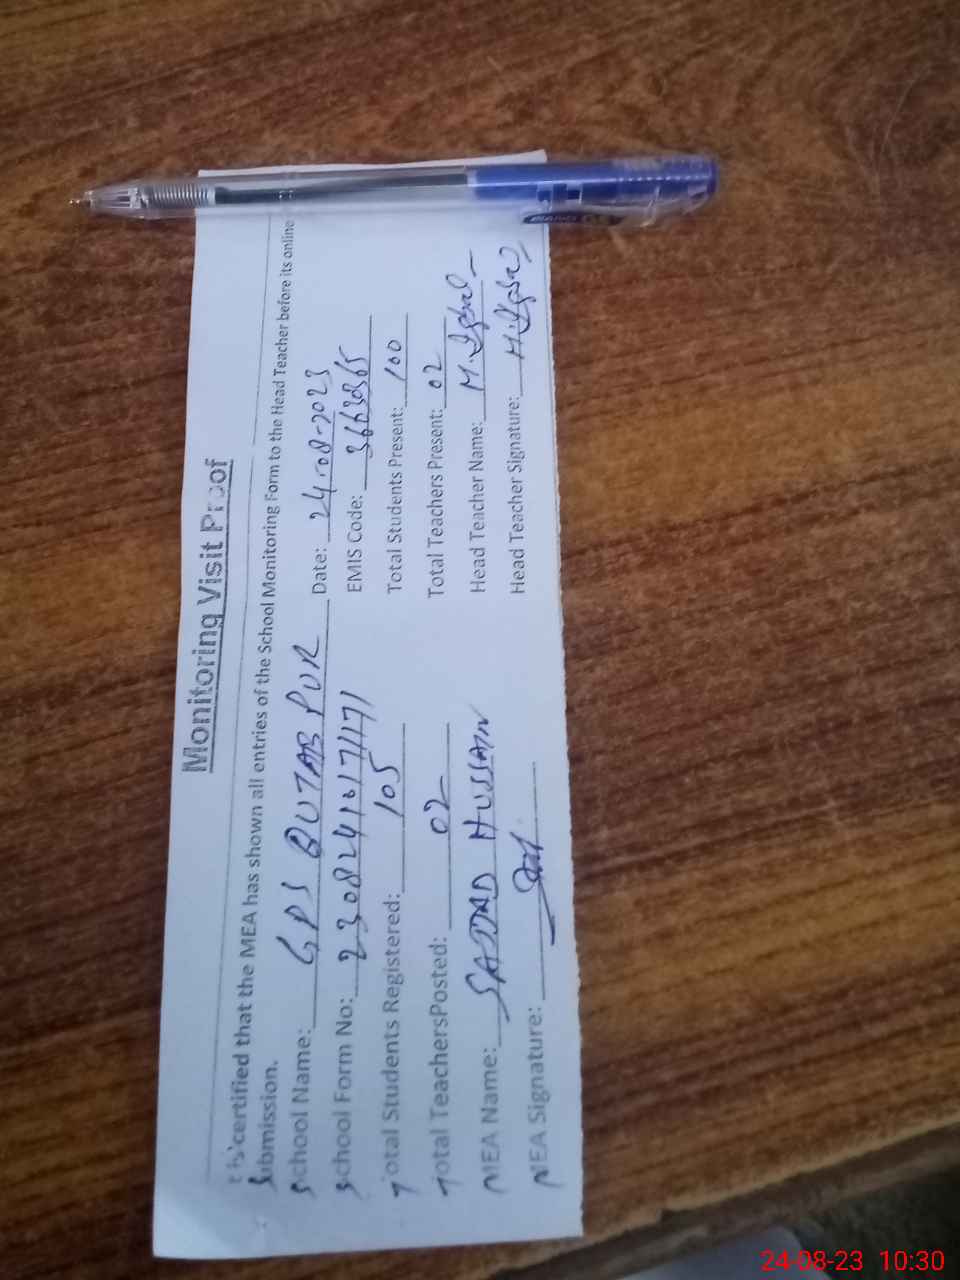 Monitoring Visit Proof
certified that the MEA has shown all entries of the School Monitoring Form to the Head Teacher before its online
Submission.
School Name: GPS QUTAB PUR Date: 24-08-2023
School Form No: EMIS Code:
Total Students Registered: 105 Total Students Present: 100
Total TeachersPosted: 02 Total Teachers Present: 02
MEA Name: SAJJAD HUSSAIN Head Teacher Name: M. Iqbal
MEA Signature: Head Teacher Signature: M. Iqbal
PIANO
24-08-23 10:30